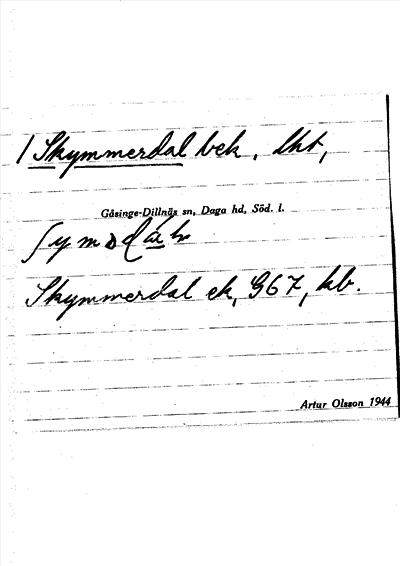 1 Skymmerdal bek. lht,
Gåsinge-Dillnäs sn, Daga hd, Söd. l.
Skymmerdal ek, G67, kb.
Artur Olsson 1944